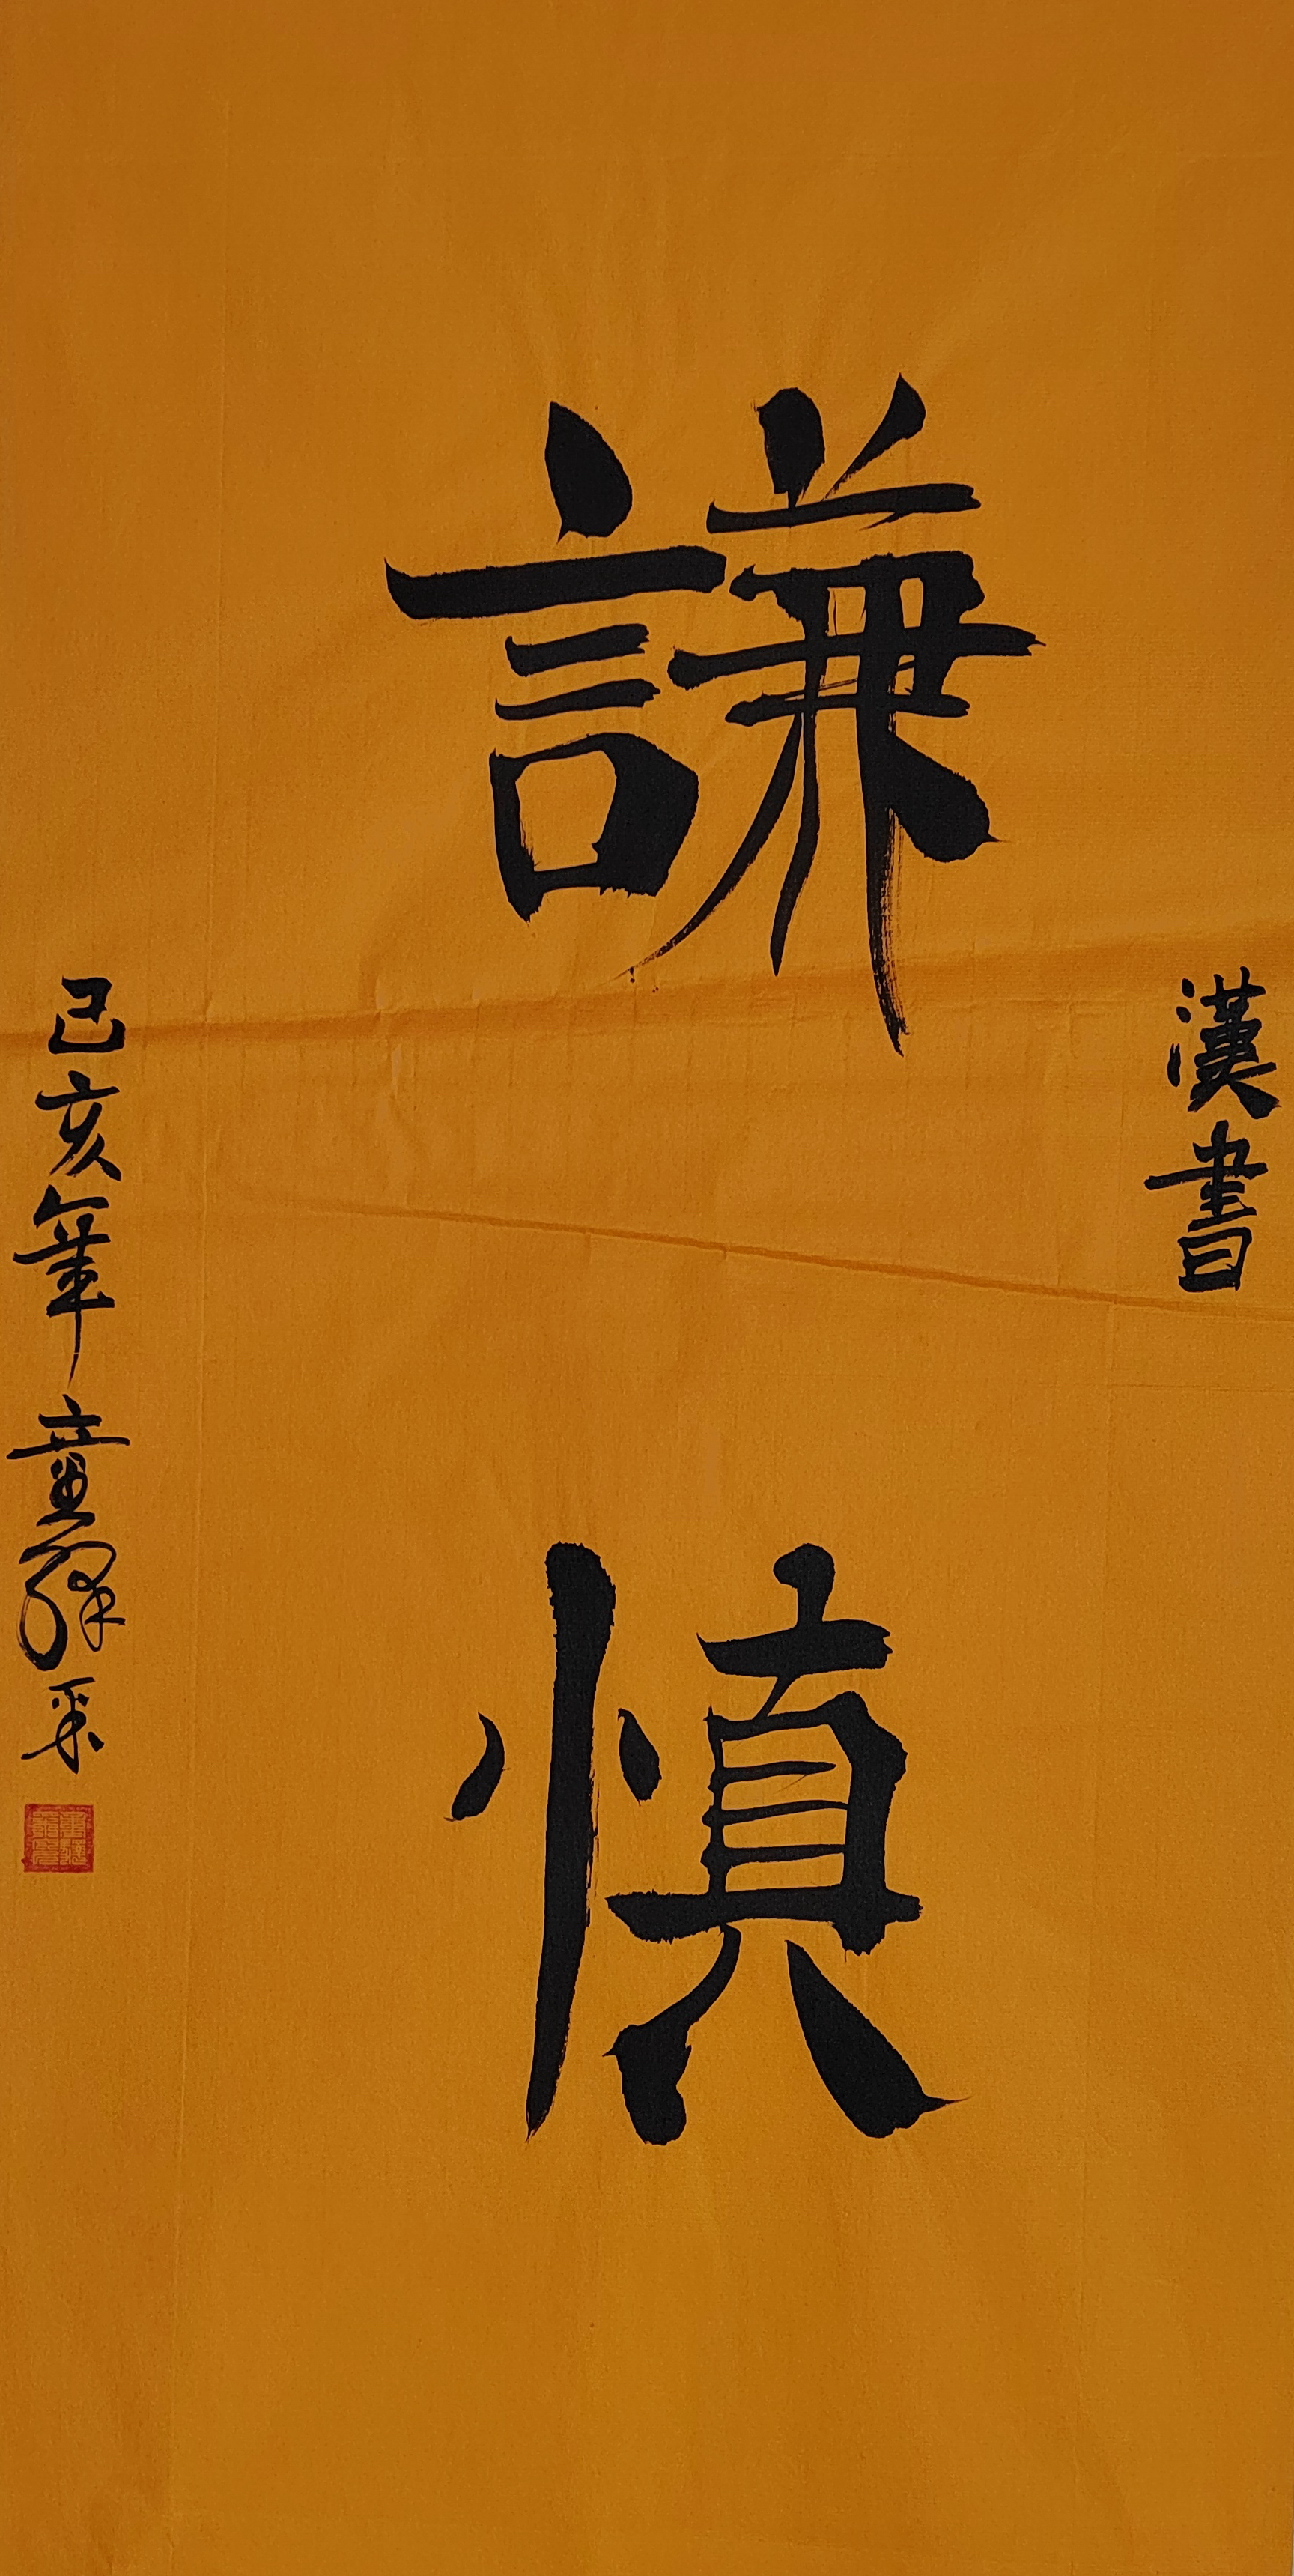 漢書
謙慎
己亥年童绎采